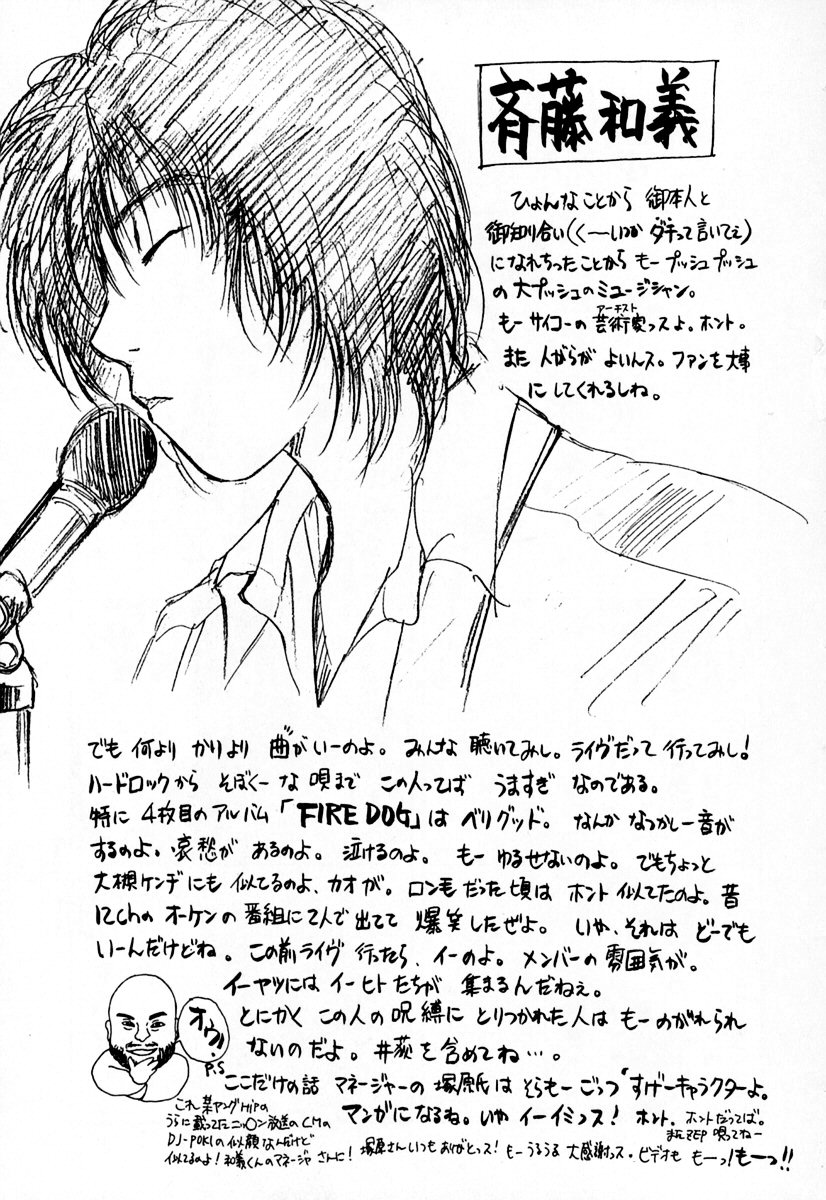 斉藤和義
ひょんなことから 御本人と
御知り合い(く〜いつか ダチって言いてぇ)
になれちったことから もー プッシュプッシュ
の 大プッシュのミュージシャン。
もー サイコーの 芸術家ッスよ。ホント。
アーチスト
また 人がらが よいんス。ファンを大事
にしてくれるしね。
でも 何より かにより 曲がいーのよ。みんな 聴いてみし。ライヴだって 行ってみし!
ハードロックから そぼくーな 唄まで この人ってば うますぎ なのである。
特に 4枚目のアルバム「FIRE DOG」は ベリグッド。なんか なつかしー音が
するのよ。哀愁が あるのよ。泣けるのよ。もー ゆるせないのよ。でもちょっと
大槻ケンヂにも 似てるのよ、カオが。ロン毛だった頃は ホント 似てたのよ。昔
12chの オーケンの 番組に 2人で 出てて 爆笑したぜよ。いや、それは どーでも
いーんだけどね。この前 ライヴ 行ったら、イーのよ。メンバーの 雰囲気が。
イーヤツには イーヒトたちが 集まるんだねぇ。
とにかく この人の 呪縛に とりつかれた人は もー のがれられ
ないのだよ。井荻を含めてね…。
オウッ!
P.S
ここだけの話 マネージャーの 塚原氏は そらもー ごっつ すげーキャラクターよ。
マンガになるね。いや イーイミっス! ホント。ホントだってば。
これ 某ヤングHipの
うらに載ってたニッ○ン放送のCMの
DJ-POKIの似顔なんだけど
似てるのよ!和義くんのマネージャさんに!
また ZEP 唄ってねー
塚原さんいつもありがとっス! もー うるうる 大感謝っス。ビデオも もーっ!もーっ!!